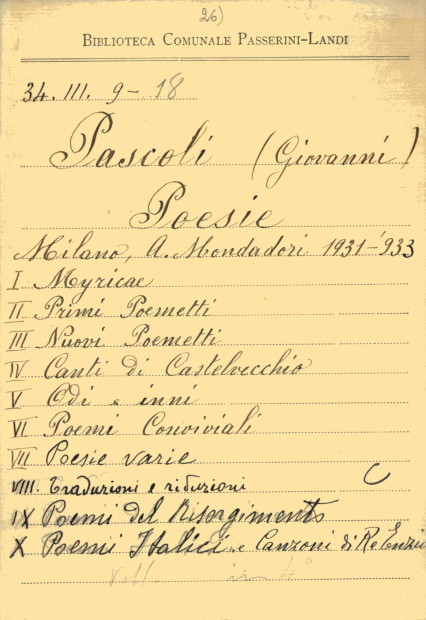 26)
BIBLIOTECA COMUNALE PASSERINI-LANDI
34. III. 9-18
Pascoli (Giovanni)
Poesie
Milano, A. Mondadori 1931-933
I Myricae
II Primi Poemetti
III Nuovi Poemetti
IV Canti di Castelvecchio
V Odi e inni
VI Poemi Conviviali
VII Poesie varie
VIII. Traduzioni e riduzioni
IX Poemi del Risorgimento
X Poemi Italici e Canzoni di Re Enzio
Voll. in 4°